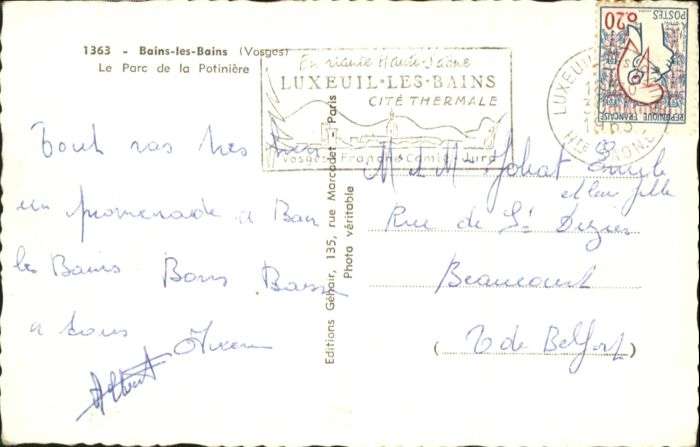 1363 - Bains-les-Bains (Vosges)
Le Parc de la Potinière
En riante Haute-Saône
LUXEUIL-LES-BAINS
CITÉ THERMALE
Vosges-Franche Comté-Jura
LUXEUIL
Hte SAONE
1963
0,20
POSTES
REPUBLIQUE FRANÇAISE
Tout vas très bien
en promenade a Bain
les Bains Bons Baiser
a tous
Albert
Editions Géhair, 135, rue Marcadet - Paris
Photo véritable
M et M Johat Emile
et leur fille
Rue de St Dizier
Beaucourt
(T de Belfort)